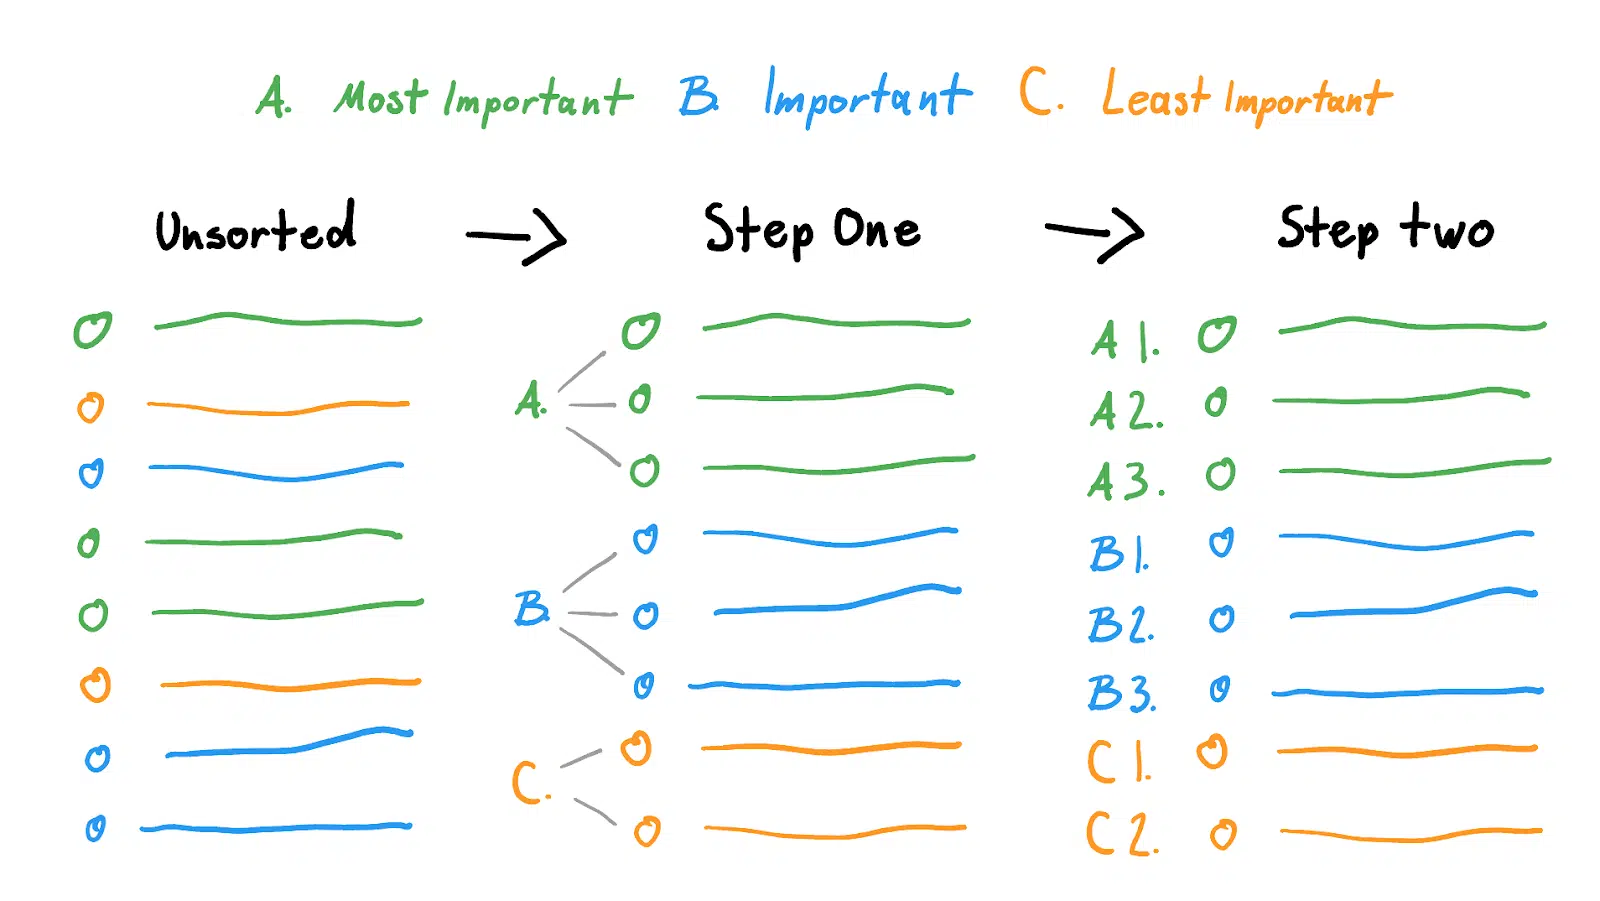 A. Most Important B. Important C. Least Important
Unsorted → Step One → Step two
A.
B.
C.
A 1.
A 2.
A 3.
B 1.
B 2.
B 3.
C 1.
C 2.